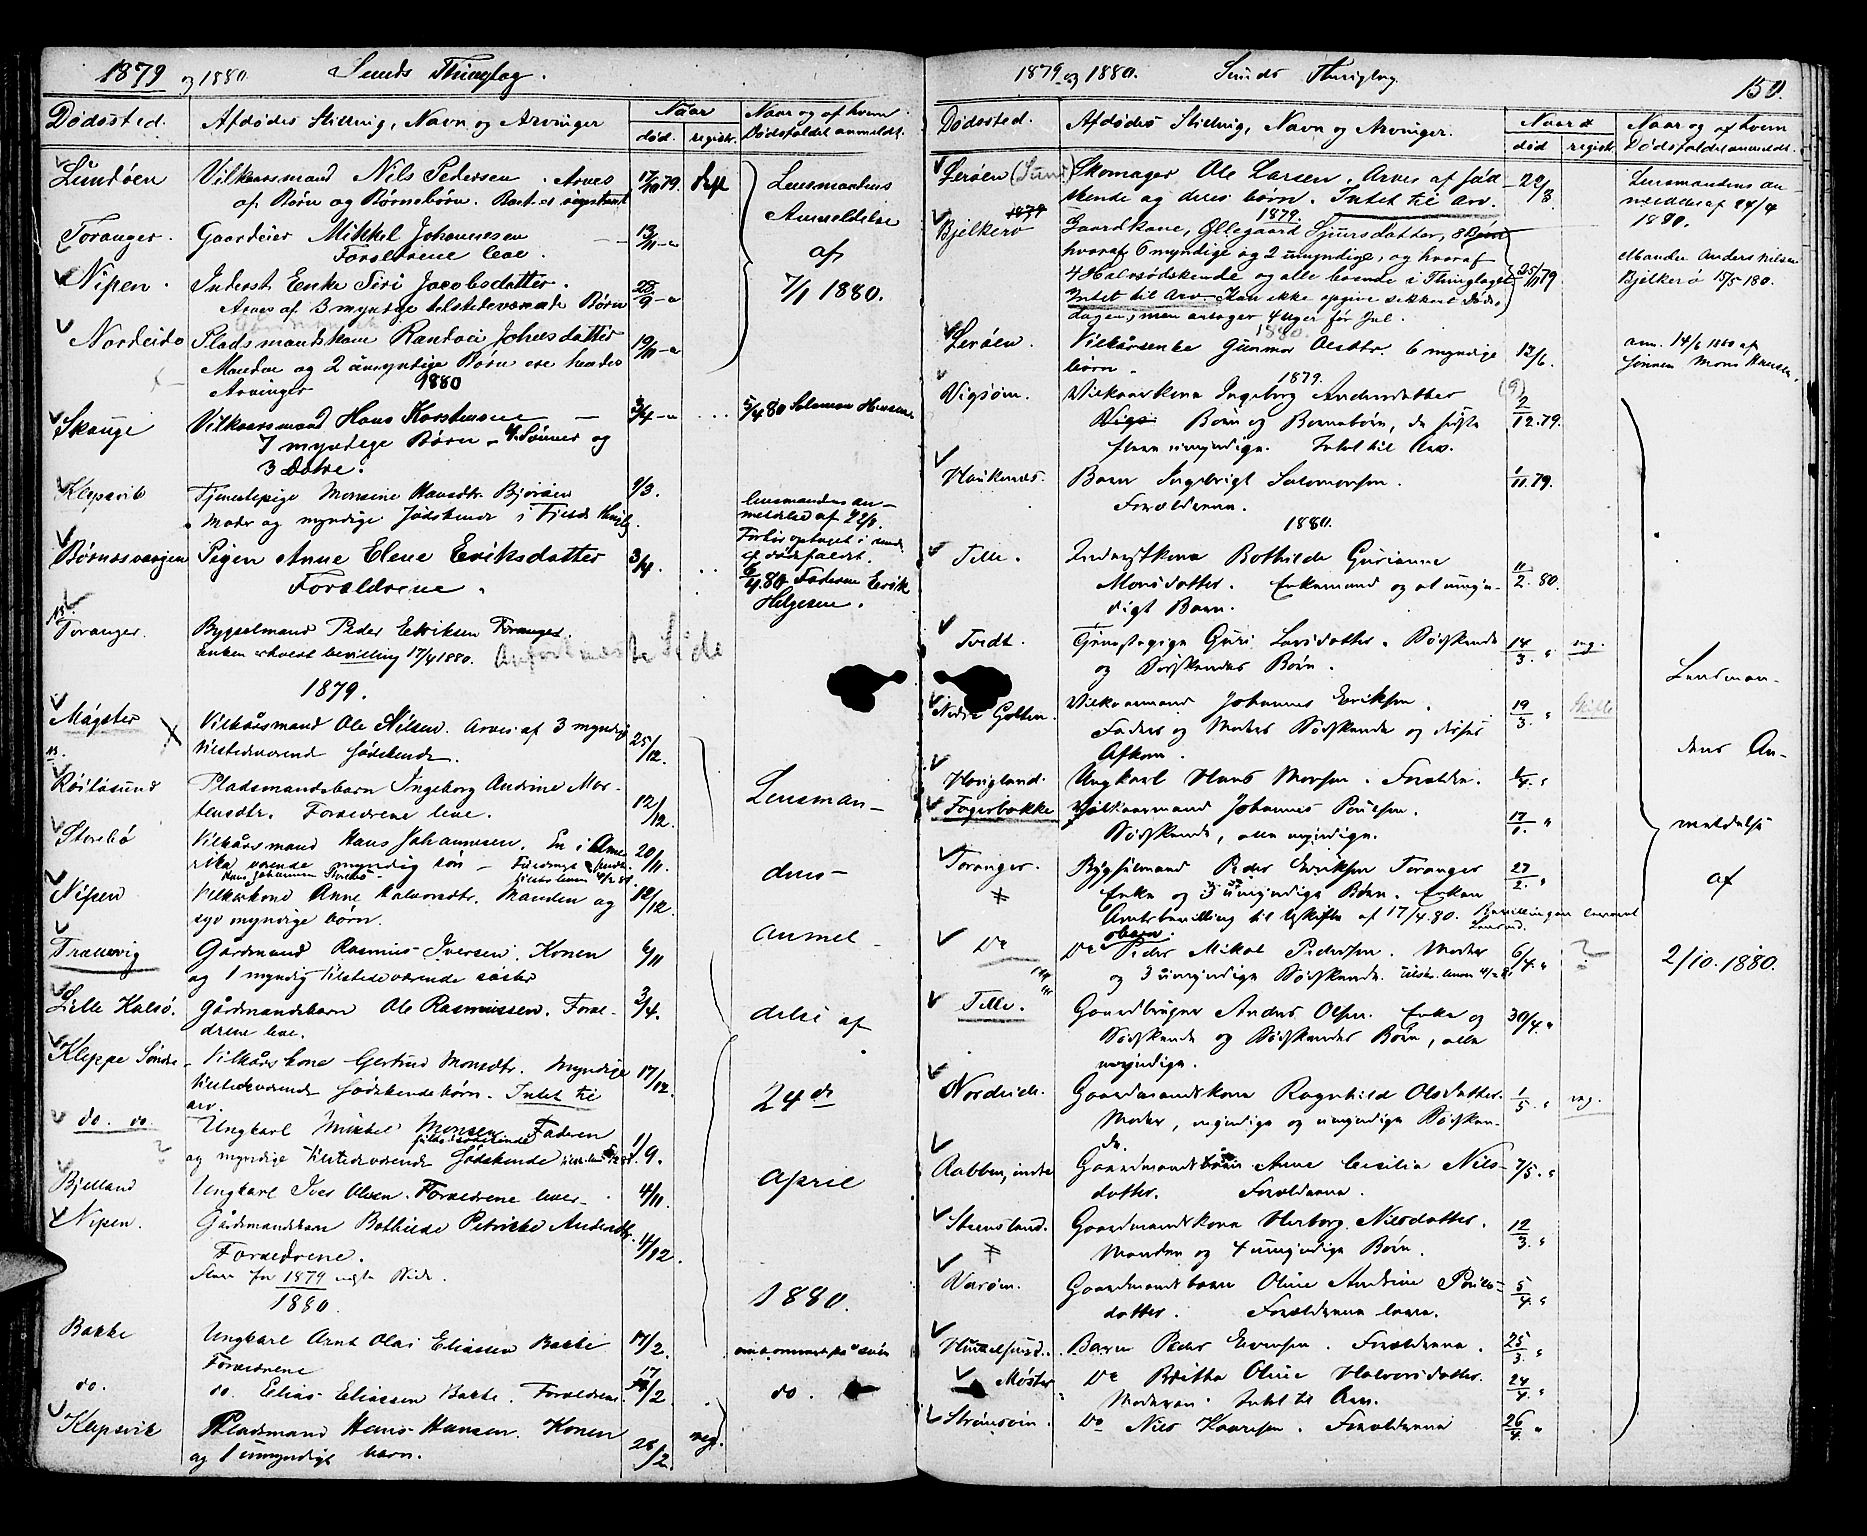 1879 og 1880. Sunds Thinglag.
Dødssted. Afdødes Stilling, Navn og Arvinger Naar død. registr. Naar og af hvem Dødsfaldet anmeldt.
Lundøen Vilkaarsmand Nils Pedersen. Arves 17/10 79.
af Børn og Børnebørn.
Lensmandens
Anmeldelse
af
7/1 1880.
Toranger. Gaardeier Mikkel Johannessen 13/11
Forældrene leve.
Nipen. Inderst Enke Siri Jacobsdatter. 28/9
Arves af 3 myndige tilstedeværende Børn
Nordeide Pladsmandskone Randvei Johnsdatter 19/11
Manden og 2 umyndige Børn ere hendes
Arvinger
1880
Skauge Vilkaarsmand Hans Karstensen 3/4 5/4 80 Salomon Hansen
7 myndige Børn, 4 Sønner og
3 Døtre.
Klepsvik Tjenestepige Monsine Hansdtr. Bjorøen 9/3.
Moder og myndige Sødskende i Fjelds Thinglg.
lensmandens an-
meldelse af
Børnesvangen Pigen Anne Elene Eriksdatter 3/4.
Forældrene.
6/4 80 Faderen Erik
Helgesen.
Toranger. Bygselmand Peder Eriksen Toranger.
Enken erholdt bevilling 17/4 1880. Anført næste Side
1879.
Møgster Vilkårsmand Ole Nilsen. Arves af 3 myndige 25/12.
tilstedeværende Sødskende.
Lensman-
dens
anmel-
delse af
24de
April
1880.
Pladsmandsbarn Ingeborg Andrine Mor- 12/12.
tensdtr. Forældrene leve.
Storebø Vilkårsmand Hans Johannesen. En i Ame- 20/11.
rika værende myndig søn
Nipen Vilkårskone Anne Halvorsdtr. Manden og 12/12.
syv myndige børn.
Trællevig Gårdmand Rasmus Iversen. Konen 6/11
og 1 myndig tilstedeværende søster
Lille Kalsø. Gårdmandsbarn Ole Rasmussen. Foræl- 3/4.
drene leve.
Kleppe Søndre Vilkårskone Gertrud Monsdtr. Myndige 17/12.
tilstedeværende Sødskendebørn. Intet til
arv.
do. do. Ungkarl Mikkel Monsen Faderen 1/9.
og myndige tilstedeværende Sødskende
Bjelland Ungkarl Iver Olsen. Forældrene lever. 4/11.
Nipen. Gårdmandsbarn Bothilde Petrikke Andersdtr. 14/12.
Forældrene.
Flere for 1879 næste Side.
1880.
Bakke Ungkarl Arnt Olai Eliassen Bakke 17/2.
Forældrene
do. do. Elias Eliassen Bakke. Forældrene. 17/2. do.
Klepsvik Pladsmand Hans Hansen. Konen 28/2. reg.
og 1 umyndigt barn.
1879 og 1880. Sunds Thinglag. 150.
Dødssted. Afdødes Stilling, Navn og Arvinger. Naar død registr. Naar og af hvem Dødsfaldet anmeldt.
Lerøen (Sund) Skomager Ole Larsen. Arves af Sød- 29/8.
skende og deres børn. Intet til arv.
Lensmandens an-
meldelse af 24/4
1880.
1879.
Bjelkerø Gaardkone, Øllegaard Sjursdatter, 8 Børn
hvoraf 6 myndige og 2 umyndige, og hvoraf
4 Halvsødskende og alle boende i Thinglaget 25/11 79.
Intet til Arv. Kan ikke opgive sikkert Døds-
dagen, men antager 4 uger før Jul.
Manden Anders Nilsen
Bjelkerø 15/5 80.
1880.
Lerøen. Vilkårsenke Gunnor Olsdtr. 6 myndige 12/6.
børn.
anm. 14/6 1880 af
Sønnen Mons Hansen.
1879.
Vigsøen. Vilkaarskone Ingeborg Andersdatter (9) 2/12. 79.
Børn og Børnebørn, de sidste
flere umyndige. Intet til Arv.
Haukenæs. Barn Ingebrigt Salomonsen. 1/11. 79.
Forældrene.
1880.
Telle. Inderstkone Bothilde Gurianne 11/2. 80.
Monsdatter. Enkemand og et umyn-
digt Barn.
Tvedt. Tjenestepige Guri Larsdatter. Sødskende 14/3. reg.
og Sødskendes Børn.
Nedre Golten. Vilkaarsmand Johannes Eriksen. 19/3.
Faders og Moders Sødskende og disses
Afkom.
Hougland. Ungkarl Hans Monsen. Forældre. 1/4.
Fagerbakke Vilkaarsmand Johannes Poulsen. 17/1.
Sødskende, alle myndige.
Toranger. Bygselmand Peder Eriksen Toranger 27/2.
Enke og 3 umyndige Børn. Enken
Amtsbevilling til Uskifte af 17/4. 80.
Do Do Peder Mikal Pedersen. Moder 6/4.
og 3 umyndige Sødskende.
Telle. Gaardbruger Anders Olsen. Enke og 30/4.
Sødskende og Sødskendes Børn, alle
myndige.
Nordeide. Gaardmandskone Ragnhild Olsdatter. 1/5. reg.
Moder, myndige og umyndige Sødsken-
de.
Rabben, indre Gaardmandsbarn Anne Cecilia Nils- 7/5.
datter. Forældrene.
Steensland. Gaardmandskone Herborg Nilsdatter. 12/3.
Manden og 4 umyndige Børn.
Varøen. Gaardmandsbarn Oline Andrine Pouls- 5/4.
datter. Forældrene leve.
Hummelsund. Barn Peder Iversen. Forældrene. 25/3.
Møster Do Britha Oline Halvorsdatter. 24/4.
Moderen. Intet til Arv.
Strømsøen. Do Nils Kaarsen. Forældrene 26/4.
Lensman-
dens An-
meldelse
af
2/10. 1880.